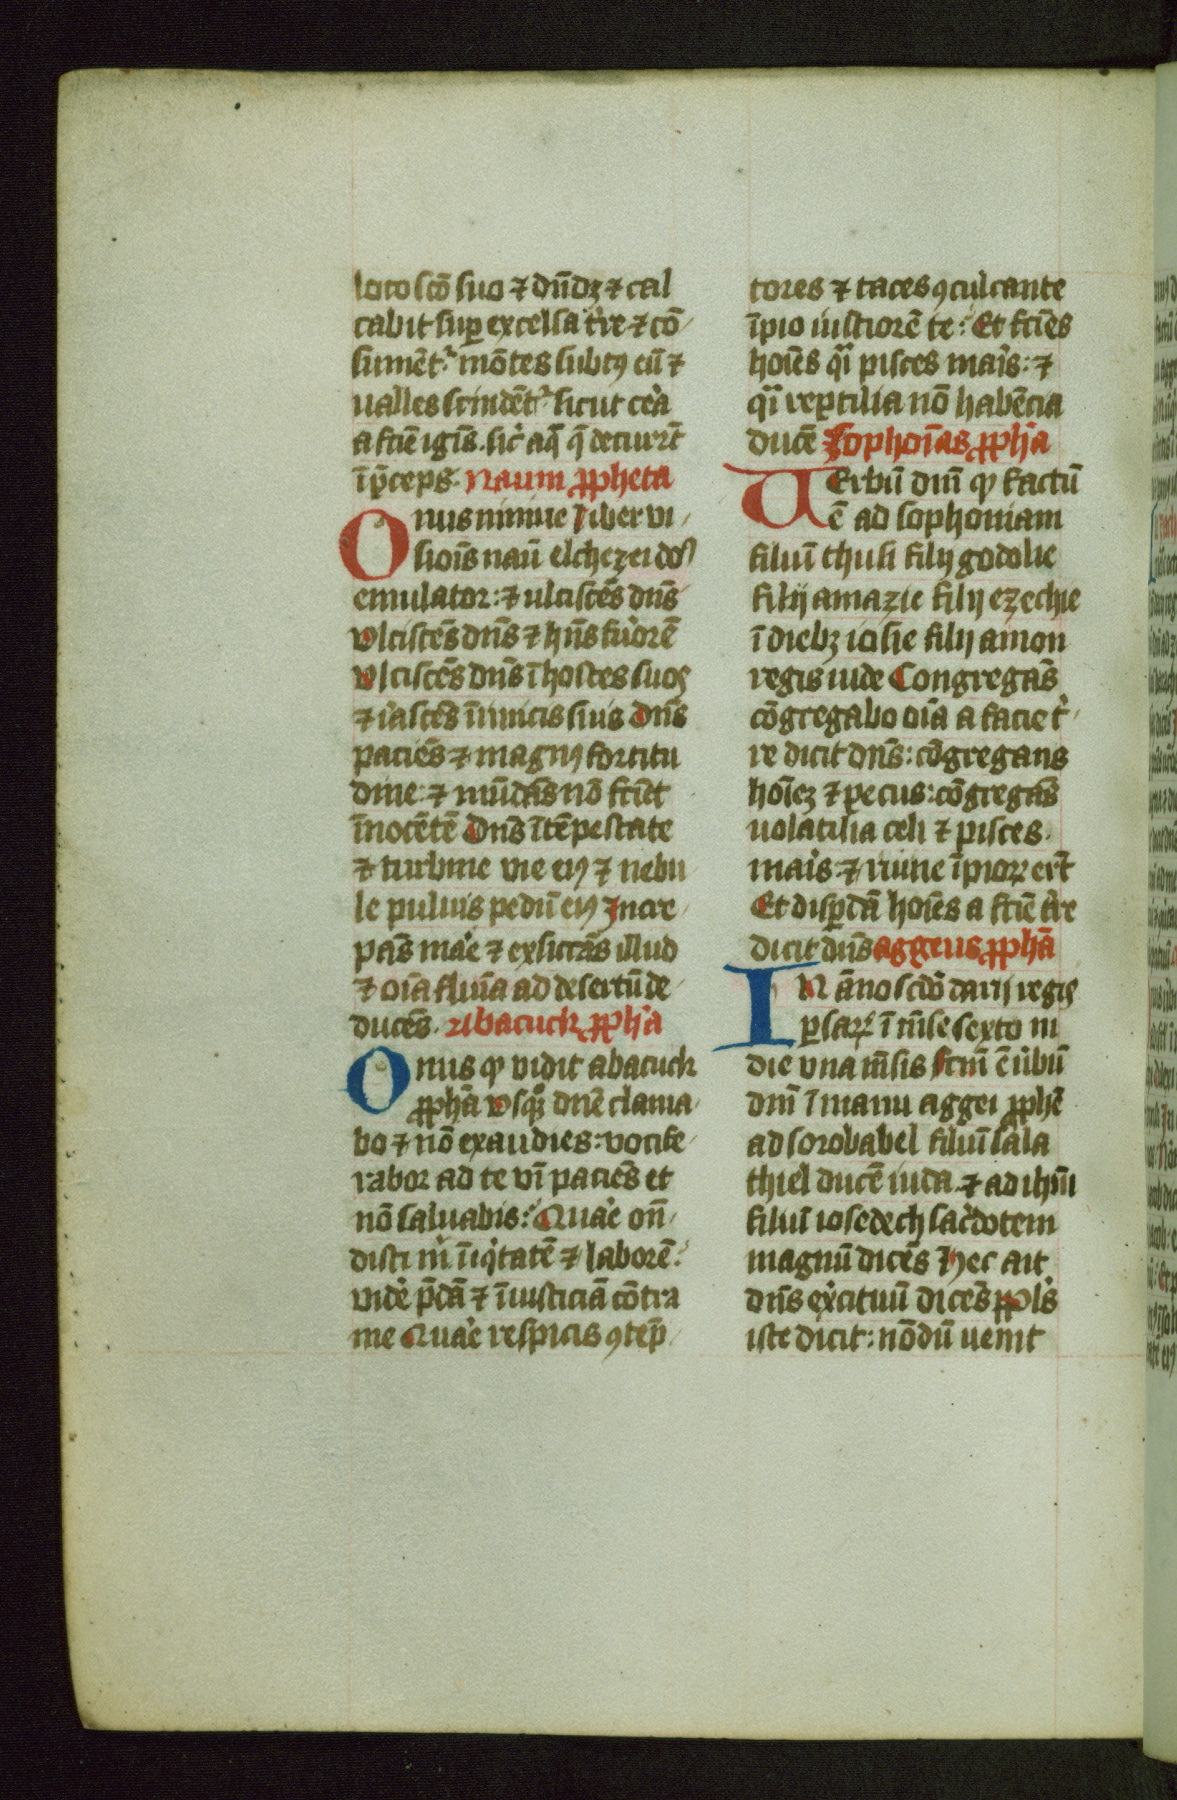 loco scō suo ⁊ dn̄dꝫ ⁊ cal
cabit suꝑ excelsa tr̄re ⁊ cō
sumēt᷑ mōtes subtꝰ eū ⁊
ualles scindēt᷑ sicut ce͛a
a fcīe igīs. sic͛ aq̄ q̄ decurr̄t
ī p̄ceps. Naum ꝓpheta
Onus niniue Liber vi
sioīs naū elchezei do᷒
emulator: ⁊ ulciscēs dn̄s
Vlciscēs dn̄s ⁊ hn̄s fu͛orē
Vlciscēs dn̄s ī hostes suos
⁊ i͛ascēs īimicis suis Dn̄s
paciēs ⁊ magnꝰ fortitu
dine: ⁊ mūdās nō fciēt
īnocētē Dn̄s ī tēpestate
⁊ turbine vie eiꝰ ⁊ nebu
le puluis pedū eiꝰ Incre
pās ma͛e ⁊ exsiccās illud
⁊ oīa fluīa ad desertū de
ducēs. Abacuck ꝓph̄a
Onus ꝙ vidit abacuck
ꝓph̄a Vsqꝫ dn̄e clama
bo ⁊ nō exaudies: vocife
rabor ad te vī paciēs et
nō saluabis: Qua͛e on̄
disti m͛ īiqͥtatē ⁊ laborē:
vide͛ p̄dā ⁊ īiusticiā cōtra
me Qua͛e respicis ꝯtēp
tores ⁊ taces ꝯculcante
īpio iustiorē te: Et fciēs
hoīes qͣi pisces ma͛is: ⁊
qͣi reptilia nō habēcia
ducē Sophoīas ꝓph̄a
VErbū dn̄i ꝙ factū
ē ad sophoniam
filiuī chusi filij godolie
filij amazie filij ezechie
ī diebꝫ iosie filij amon
regis iude Congregās
cōgregabo oīa a facie t͛
re dicit dn̄s: cōgregans
hoīeꝫ ⁊ pecus: cōgregās
uolatilia celi ⁊ pisces
ma͛is ⁊ ruine īpioꝝ er̄t
Et disꝑdā hoīes a fcīe tr̄re
dicit dn̄s aggeus ꝓph̄a
IN āno scdo͛ darij regis
ꝑsaꝝ ī mēse sexto ī
die vna mēsis Fcm̄ ē u͛bū
dn̄i ī manu aggei ꝓphē
ad sorobabel filiuī sala
thiel ducē iuda ⁊ ad ihm̄
filiuī iosedech sac͛dotem
magnū dicēs Hec ait
dn̄s ex͛cituū dicēs Ppl͛s
iste dicit: nōdū uenit